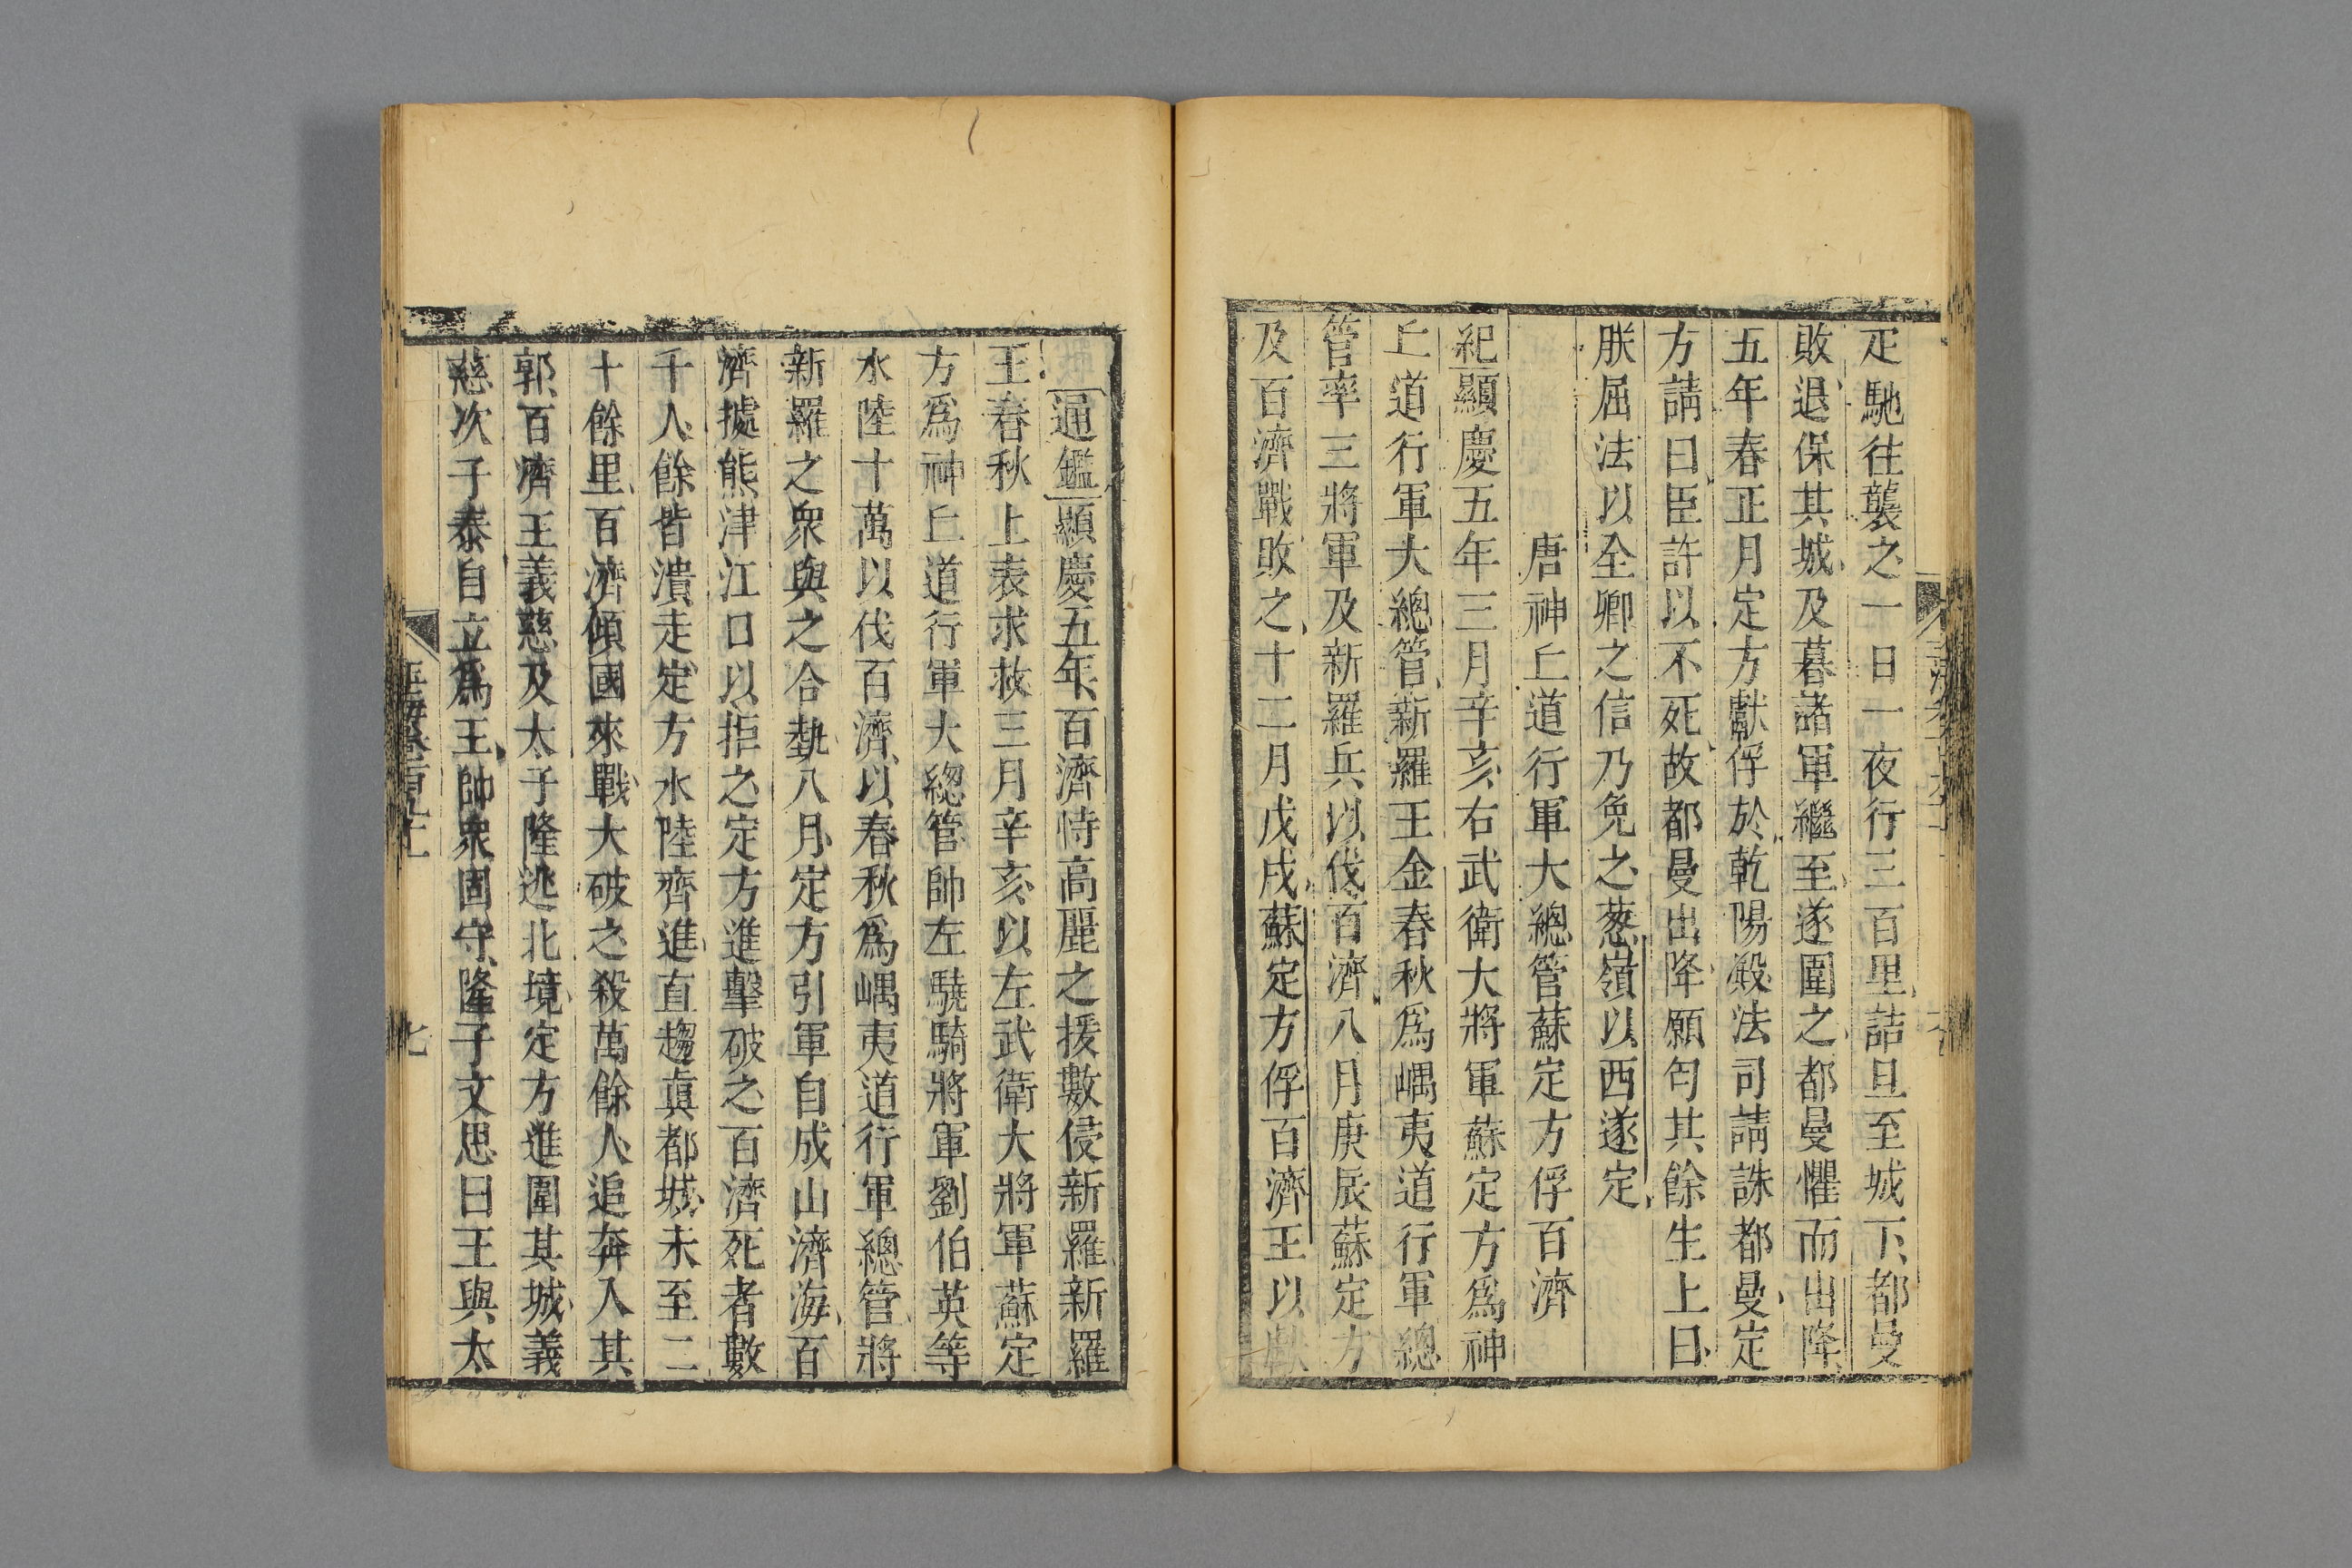 疋馳往襲之一日一夜行三百里詰旦至城下都曼
敗退保其城及暮諸軍繼至遂圍之都曼懼而出降
五年春正月定方獻俘於乾陽殿法司請誅都曼定
方請曰臣許以不死故都曼出降願匄其餘生上曰
朕屈法以全卿之信乃免之葱嶺以西遂定
唐神丘道行軍大總管蘇定方俘百濟
紀顯慶五年三月辛亥右武衛大將軍蘇定方爲神
丘道行軍大總管新羅王金春秋爲嵎夷道行軍總
管率三將軍及新羅兵以伐百濟八月庚辰蘇定方
及百濟戰敗之十二月戊戌蘇定方俘百濟王以獻
通鑑顯慶五年百濟恃高麗之援數侵新羅新羅
王春秋上表求救三月辛亥以左武衛大將軍蘇定
方爲神丘道行軍大總管帥左驍騎將軍劉伯英等
水陸十萬以伐百濟以春秋爲嵎夷道行軍總管將
新羅之衆與之合勢八月定方引軍自成山濟海百
濟據熊津江口以拒之定方進擊破之百濟死者數
千人餘皆潰走定方水陸齊進直趨真都城未至二
十餘里百濟傾國來戰大破之殺萬餘人追奔入其
郭百濟王義慈及太子隆逃北境定方進圍其城義
慈次子泰自立爲王帥衆固守隆子文思曰王與太
七